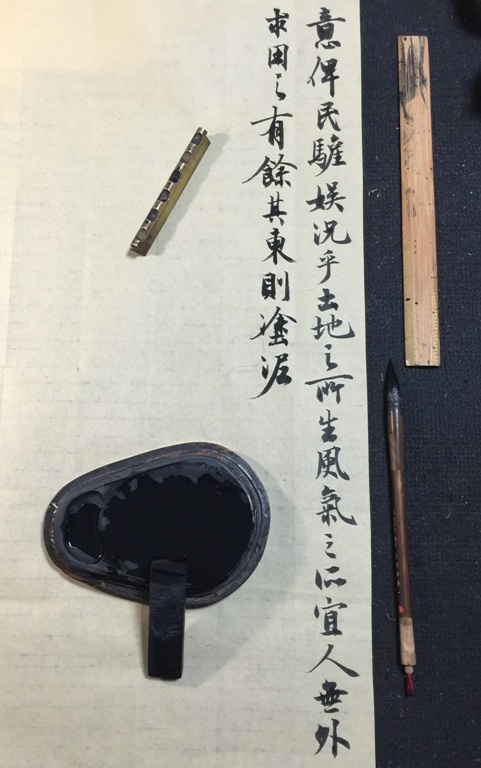 意俾民驩娛況乎土地之所生風氣之所宜人無外
求用之有餘其東則塗泥